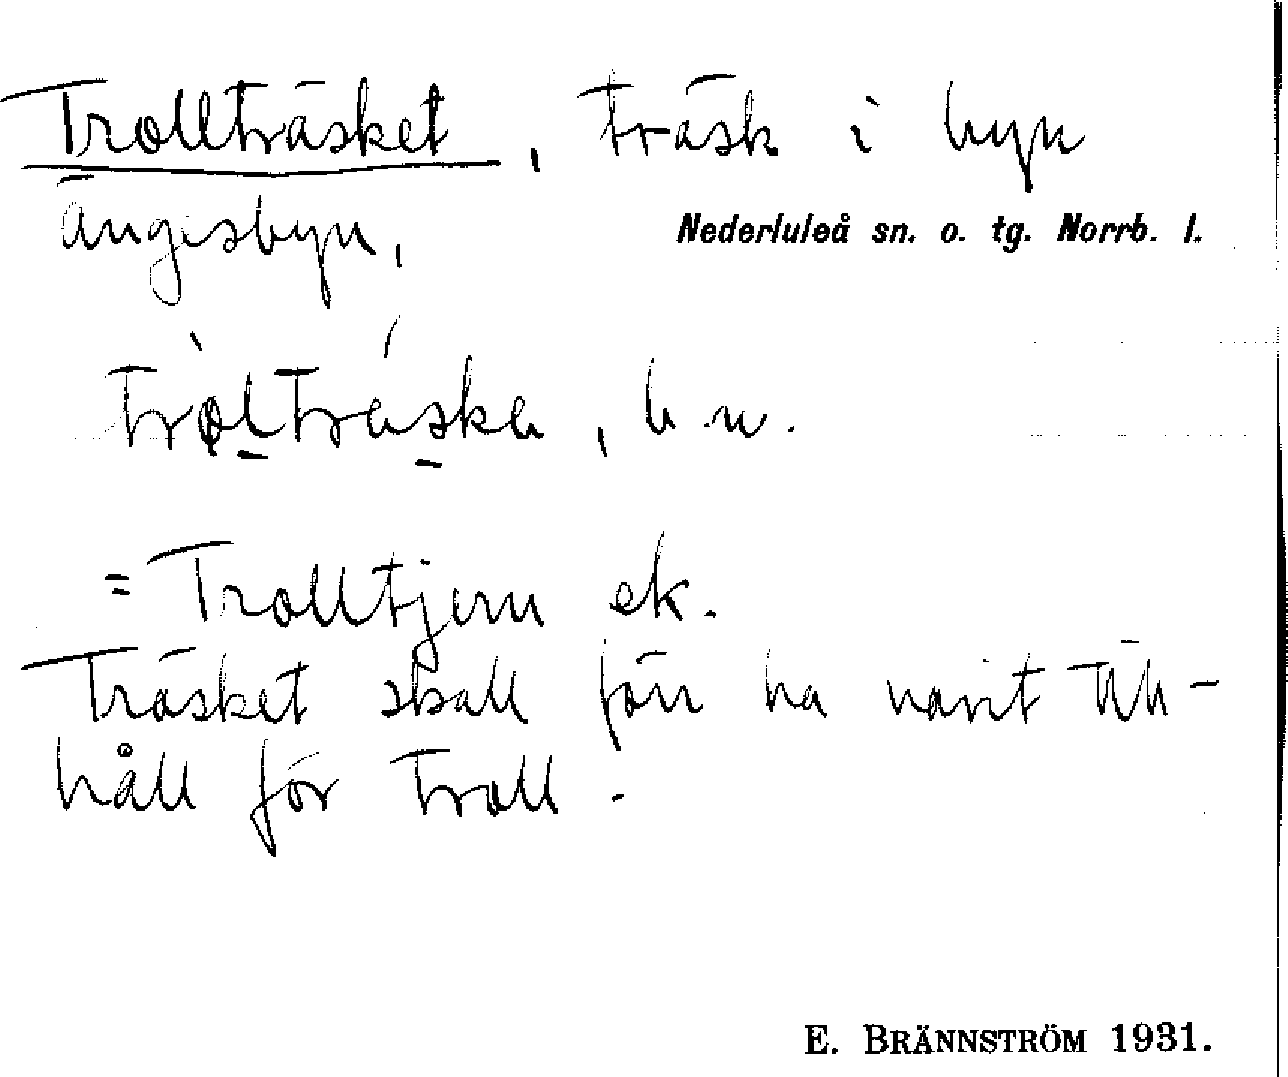 Trollträsket, träsk i byn
Ängesbyn,
Nederluleå sn. o. tg. Norrb. l.
tròlträ́ska, b.n.
= Trolltjern ek.
Träsket skall förr ha varit till-
håll för troll.
E. BRÄNNSTRÖM 1931.